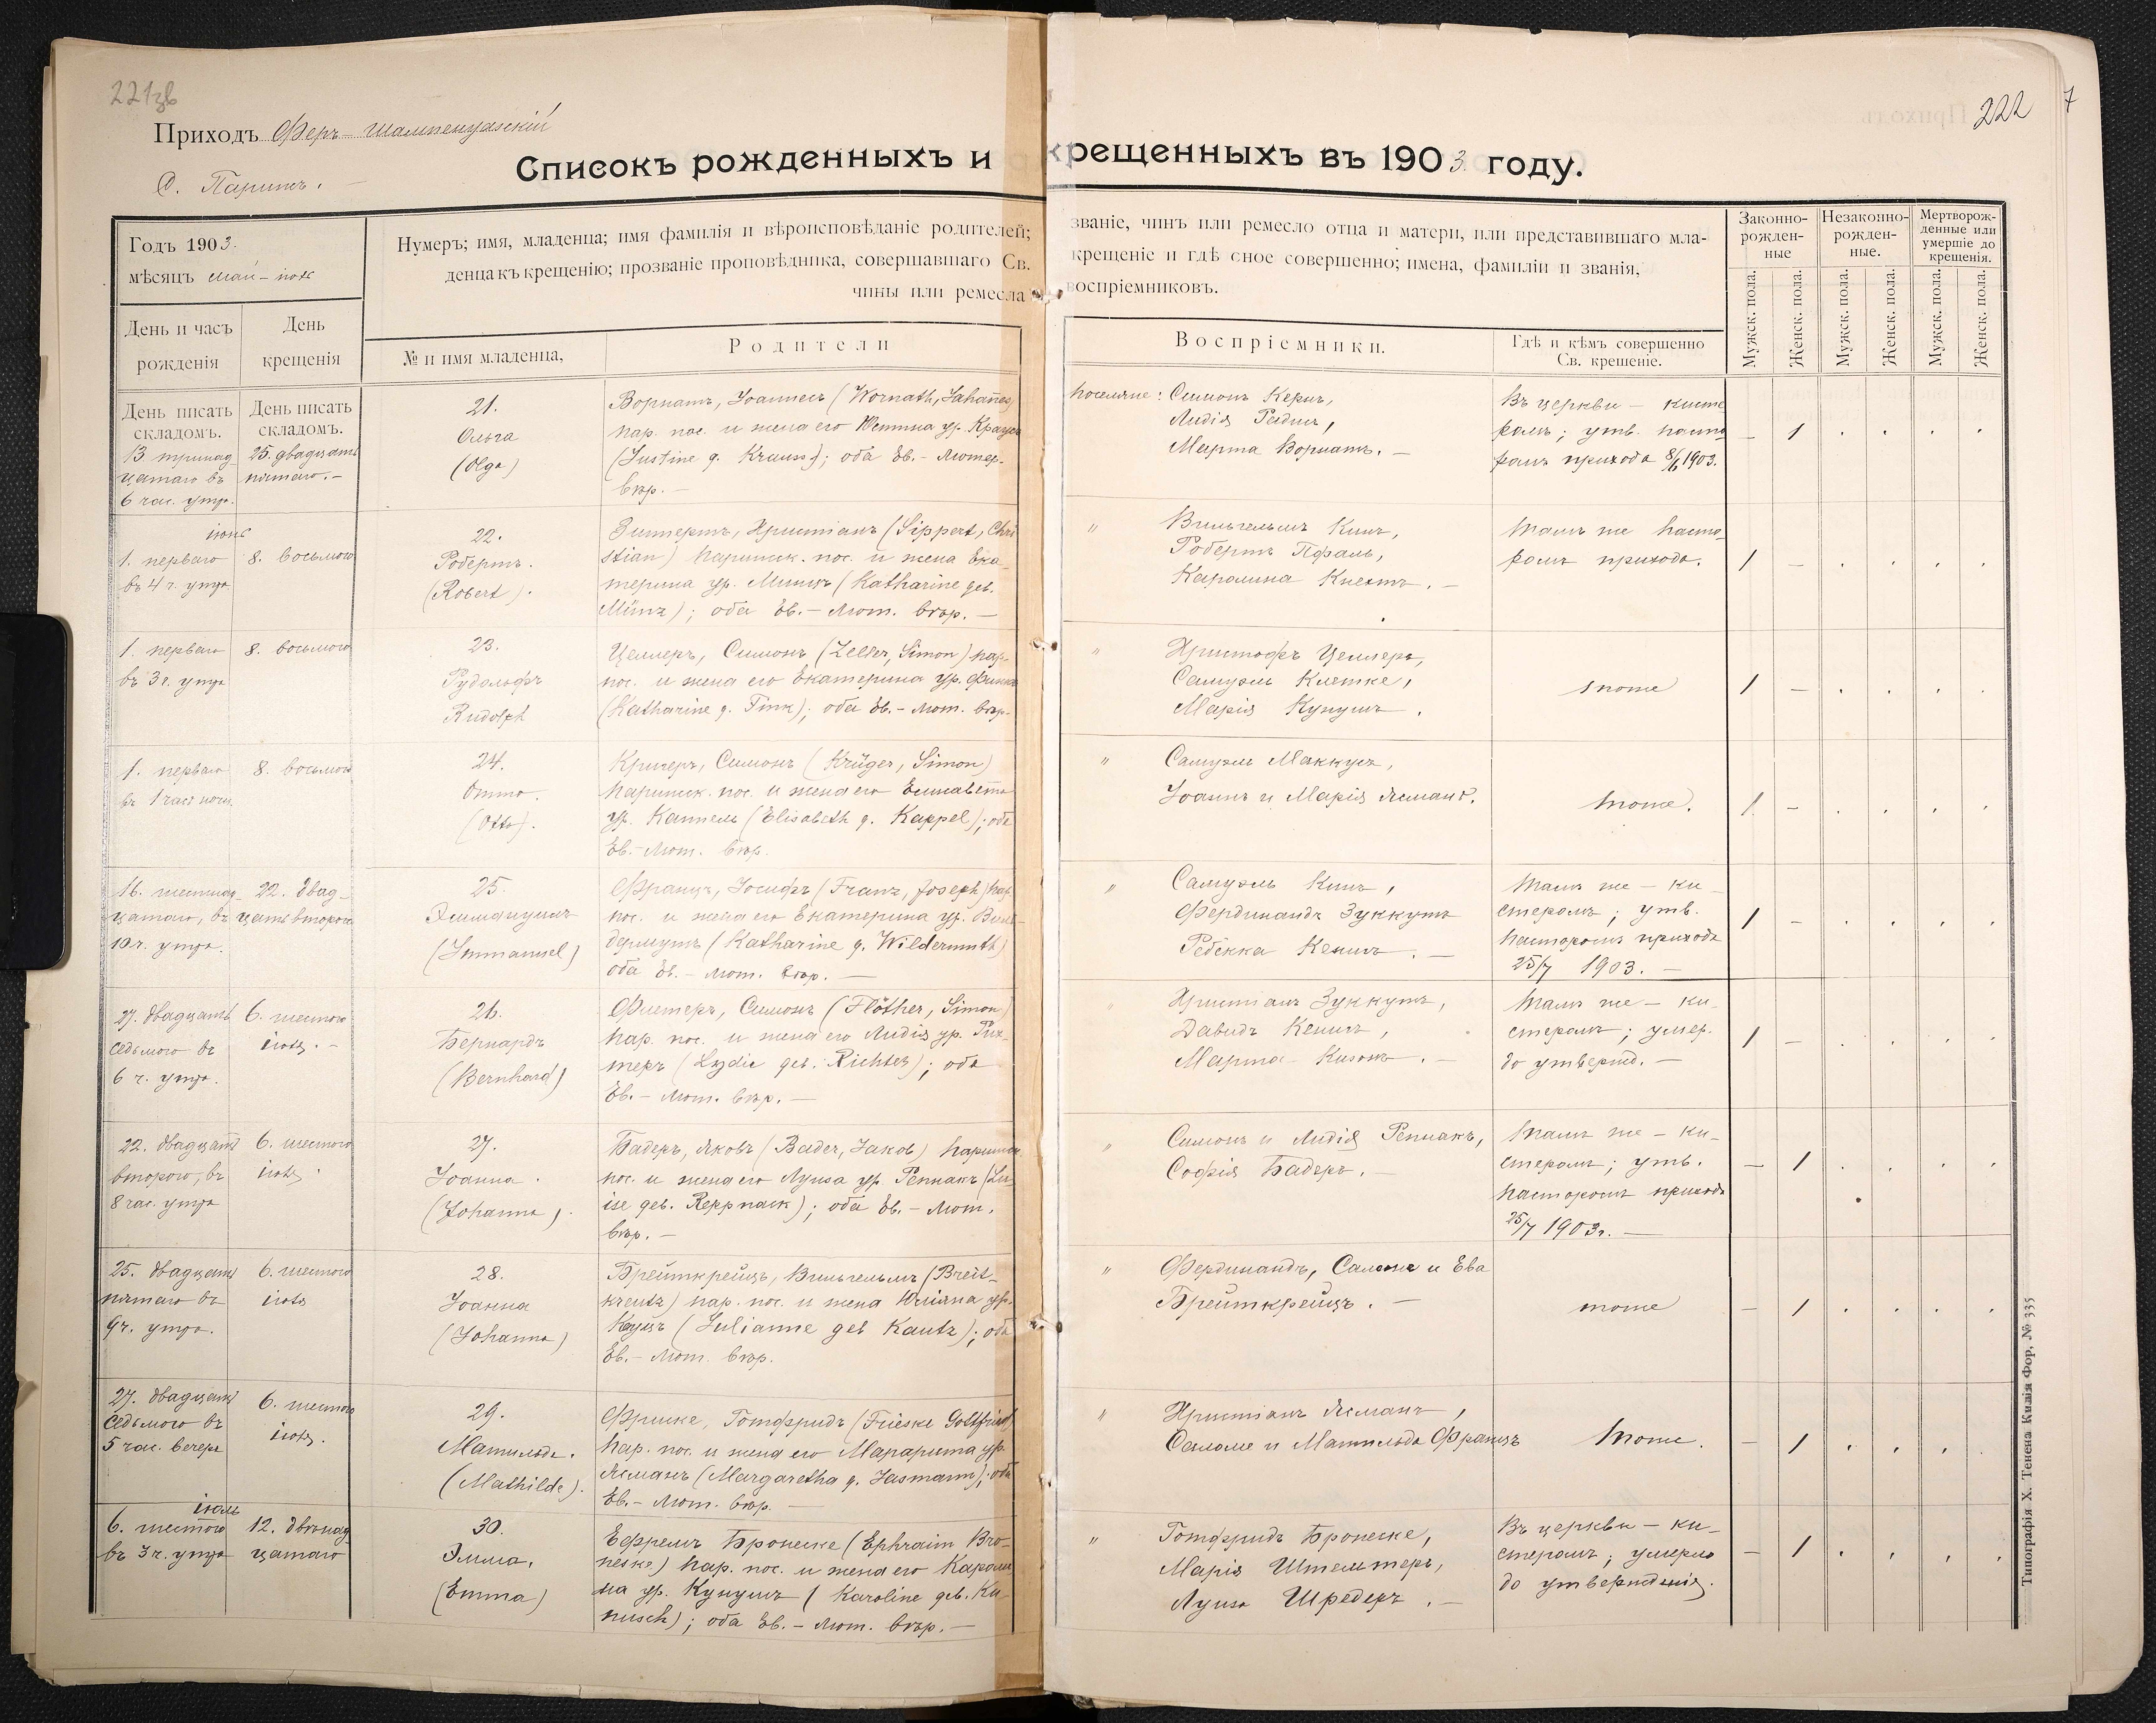 221зв
222
7
Приходъ Феръ-шампенуазскій
С. Парижъ.
Списокъ рожденныхъ и крещенныхъ въ 1903 году.
Годъ 1903.
мѣсяцъ май – іюн
День и часъ рожденія
День крещенія
Нумеръ; имя, младенца; имя фамилія и вѣроисповѣданіе родителей; званіе, чинъ или ремесло отца и матери, или представившаго мла-
денца къ крещенію; прозваніе проповѣдника, совершавшаго Св. крещеніе и гдѣ оное совершенно; имена, фамиліи и званія,
чины или ремесла воспріемниковъ.
№ и имя младенца,
Родители
Воспріемники.
Гдѣ и кѣмъ совершенно
Св. крешеніе.
Законно-
рожден-
ные
Незаконно-
рожден-
ные.
Мертворож-
денные или
умершіе до
крещенія.
Мужск. пола.
Женск. пола.
Мужск. пола.
Женск. пола.
Мужск. пола.
Женск. пола.
День писать
складомъ.
13 тринад-
цатаго въ
6 час. утр.
День писать
складомъ.
25. двадцать
пятаго. –
21.
Ольга
(Olga)
Ворнатъ, Іоаннесъ (Wornath, Johannes)
пар. пос. и жена его Юстина ур. Краузе
(Justine g. Krause); оба Ев. – Лютер.
вѣр. –
поселяне: Симонъ Кернъ,
Лидія Радинъ,
Марта Ворнатъ. –
Въ церкви – кисте
ромъ; утв. пасто
ромъ прихода 8/6 1903.
– 1 . . . .
іюнь
1. перваго
въ 4 ч. утра.
8. восьмого
22.
Робертъ.
(Robert).
Зиппертъ, Христіанъ (Sippert, Chri
stian) парижск. пос. и жена Ека-
терина ур. Минцъ (Katharine geb.
Münz); оба Ев. – Лют. вѣр. –
" Вильгельмъ Кинъ,
Робертъ Пфаль,
Каролина Кнехтъ. –
Тамъ же пасто
ромъ прихода.
1 – . . . .
1. перваго
въ 3 ч. утра
8. восьмого
23.
Рудольфъ
Rudolph
Целлеръ, Симонъ (Zeller, Simon) пар.
пос. и жена его Екатерина ур. Финкъ
(Katharine g. Fink); оба Ев. – Лют. вѣр.
" Христофъ Целлеръ,
Самуэль Клетке,
Марія Кунушъ.
тоже
1 – . . . .
1. перваго
въ 1 час ночи.
8. восьмого
24.
Отто.
(Otto).
Кригеръ, Симонъ (Krüger, Simon)
парижск. пос. и жена его Елисавета
ур. Каппель (Elisabeth g. Kappel); оба
Ев. – Лют. вѣр.
" Самуэль Маккусъ,
Іоаннъ и Марія Ясманъ.
тоже.
1 – . . . .
16. шестнад-
цатаго, въ
10 ч. утра.
22. двад-
цать второго
25.
Эммануилъ
(Immanuel)
Францъ, Іосифъ (Franz, Joseph) пар.
пос. и жена его Екатерина ур. Виль-
дермутъ (Katharine g. Wildermuth)
оба Ев. – Лют. вѣр. –
" Самуэль Кинъ,
Фердинандъ Зуккутъ
Ребекка Кенигъ. –
Тамъ же – ки-
стеромъ; утв.
пасторомъ прихода
25/7 1903. –
1 – . . . .
27. двадцать
седьмого въ
6 ч. утра.
6. шестого
іюля. –
26.
Бернардъ
(Bernhard)
Флетеръ, Симонъ (Flöther, Simon)
пар. пос. и жена его Лидія ур. Рих-
теръ (Lydie geb. Richter); оба
Ев. – Лют. вѣр. –
" Христіанъ Зуккутъ,
Давидъ Кенигъ,
Марта Кизонъ. –
Тамъ же – ки-
стеромъ; умер.
до утвержд. –
1 – . . . .
22. двадцать
второго, въ
8 час. утра
6. шестого
іюля.
27.
Іоанна.
(Johanna).
Бадеръ, Яковъ (Bader, Jakob) парижск
пос. и жена его Луиза ур. Реппакъ (Lu
ise geb. Reppnack); оба Ев. – Лют.
вѣр. –
" Симонъ и Лидія Репнакъ,
Софія Бадеръ. –
Тамъ же – ки-
стеромъ; утв.
пасторомъ прихода
25/7 1903 г. –
– 1 . . . .
25. двадцать
пятаго въ
9 ч. утра.
6. шестого
іюля
28.
Іоанна
(Johanna)
Брейткрейцъ, Вильгельмъ (Breit-
kreutz) пар. пос. и жена Юліана ур.
Кауцъ (Julianne geb Kautz); оба
Ев. – Лют. вѣр.
" Фердинандъ, Саломе и Ева
Брейткрейцъ. –
тоже
– 1 . . . .
27. двадцать
седьмого въ
5 час. вечера
6. шестого
іюля.
29.
Матильда.
(Mathilde).
Фриске, Готфридъ (Frieske Gottfried)
пар. пос. и жена его Маргарита ур.
Ясманъ (Margaretha g. Jasmann); оба
Ев. – Лют. вѣр. –
" Христіанъ Ясманъ,
Саломе и Матильда Францъ
Тоже.
– 1 . . . .
іюль
6. шестого
въ 3 ч. утра
12. двѣнад
цатаго
30.
Эмма.
(Emma)
Ефремъ Бронеске (Ephraim Bro-
neske) пар. пос. и жена его Кароли
на ур. Кунушъ (Karoline geb. Ku-
nusch); оба Ев. – Лют. вѣр. –
" Готфридъ Бронеске,
Марія Штельтеръ,
Луиза Шредеръ. –
Въ церкви – ки-
стеромъ; умерла
до утвержденія.
– 1 . . . .
Типографія Х. Тенена Килія Фор, № 335